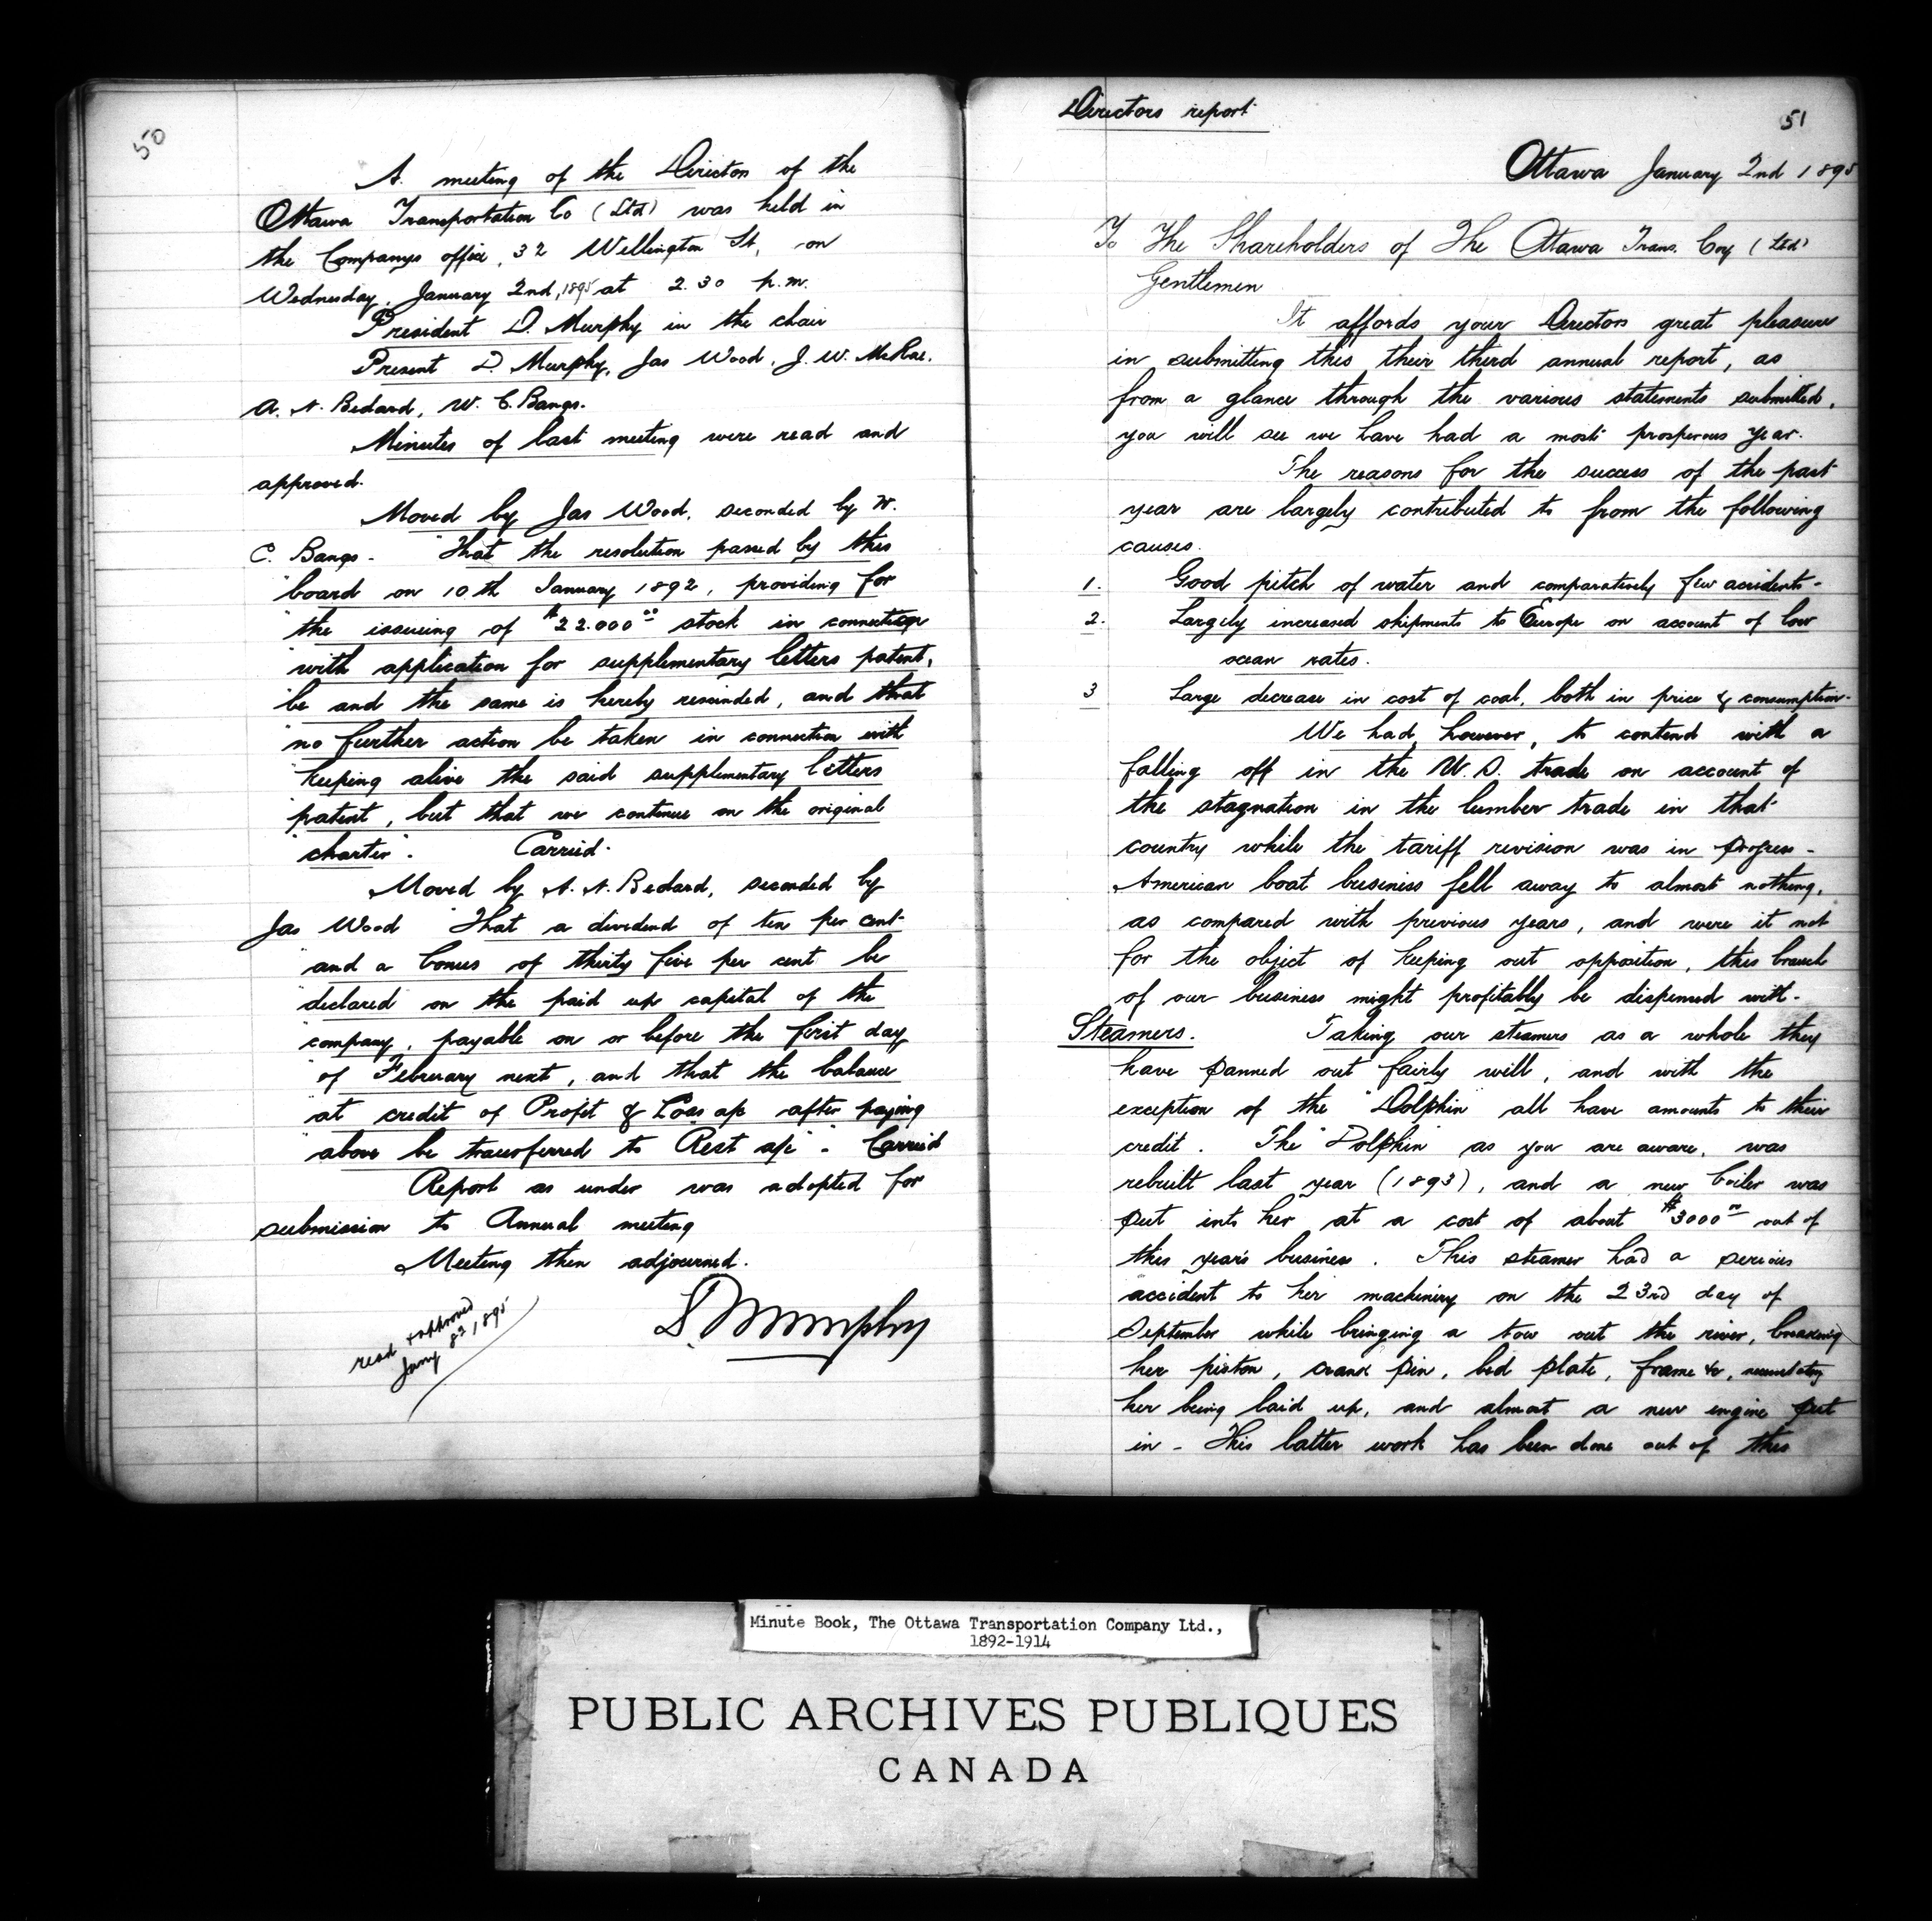 50
A. meeting of the Directors of the
Ottawa Transportation Co (Ltd) was held in
the Companys office, 32 Wellington St, on
Wednesday, January 2nd, 1895 at 2.30 p.m.
President D. Murphy in the chair
Present D. Murphy, Jas Wood, J. W. McRae.
A. N. Bedard, W. C. Bangs.
Minutes of last meeting were read and
approved.
Moved by Jas Wood, seconded by W.
C. Bangs - "That the resolution passed by this
"board on 10th January 1892, providing for
"the issueing of $22.000°° stock in connection
"with application for supplementary letters patent,
"be and the same is hereby rescinded, and that
"no further action be taken in connection with
"keeping alive the said supplementary letters
"patent, but that we continue on the original
"charter". Carried.
Moved by A. N. Bedard, seconded by
Jas Wood "That a dividend of ten per cent
"and a bonus of thirty five per cent be
"declared on the paid up capital of the
"company, payable on or before the first day
"of February next, and that the balance
"at credit of Profit & Loss a/c after paying
"above be transferred to Rest a/c". Carried
Report as under was adopted for
submission to Annual meeting
Meeting then adjourned.
D Murphy
read & approved
Jany 8th, 1895
Directors report
51
Ottawa January 2nd 1895
To The Shareholders of The Ottawa Trans. Coy (Ltd)
Gentlemen
It affords your Directors great pleasure
in submitting this their third annual report, as
from a glance through the various statements submitted,
you will see we have had a most prosperous year.
The reasons for the success of the past
year are largely contributed to from the following
causes.
1. Good pitch of water and comparatively few accidents-
2. Largely increased shipments to Europe on account of low
ocean rates.
3 Large decrease in cost of coal, both in price & consumption-
We had, however, to contend with a
falling off in the U.S. trade on account of
the stagnation in the lumber trade in that
country while the tariff revision was in progress-
American boat business fell away to almost nothing,
as compared with previous years, and were it not
for the object of keeping out opposition, this branch
of our business might profitably be dispensed with-
Steamers. Taking our steamers as a whole they
have panned out fairly well, and with the
exception of the "Dolphin" all have amounts to their
credit. The "Dolphin" as you are aware, was
rebuilt last year (1893), and a new boiler was
put into her at a cost of about $3000°° out of
this year's business. This steamer had a serious
accident to her machinery on the 23rd day of
September while bringing a tow out the river, breaking
her piston, crank pin, bed plate, frame &c, necessitating
her being laid up, and almost a new engine put
in - This latter work has been done out of this
Minute Book, The Ottawa Transportation Company Ltd.,
1892-1914
PUBLIC ARCHIVES PUBLIQUES
CANADA